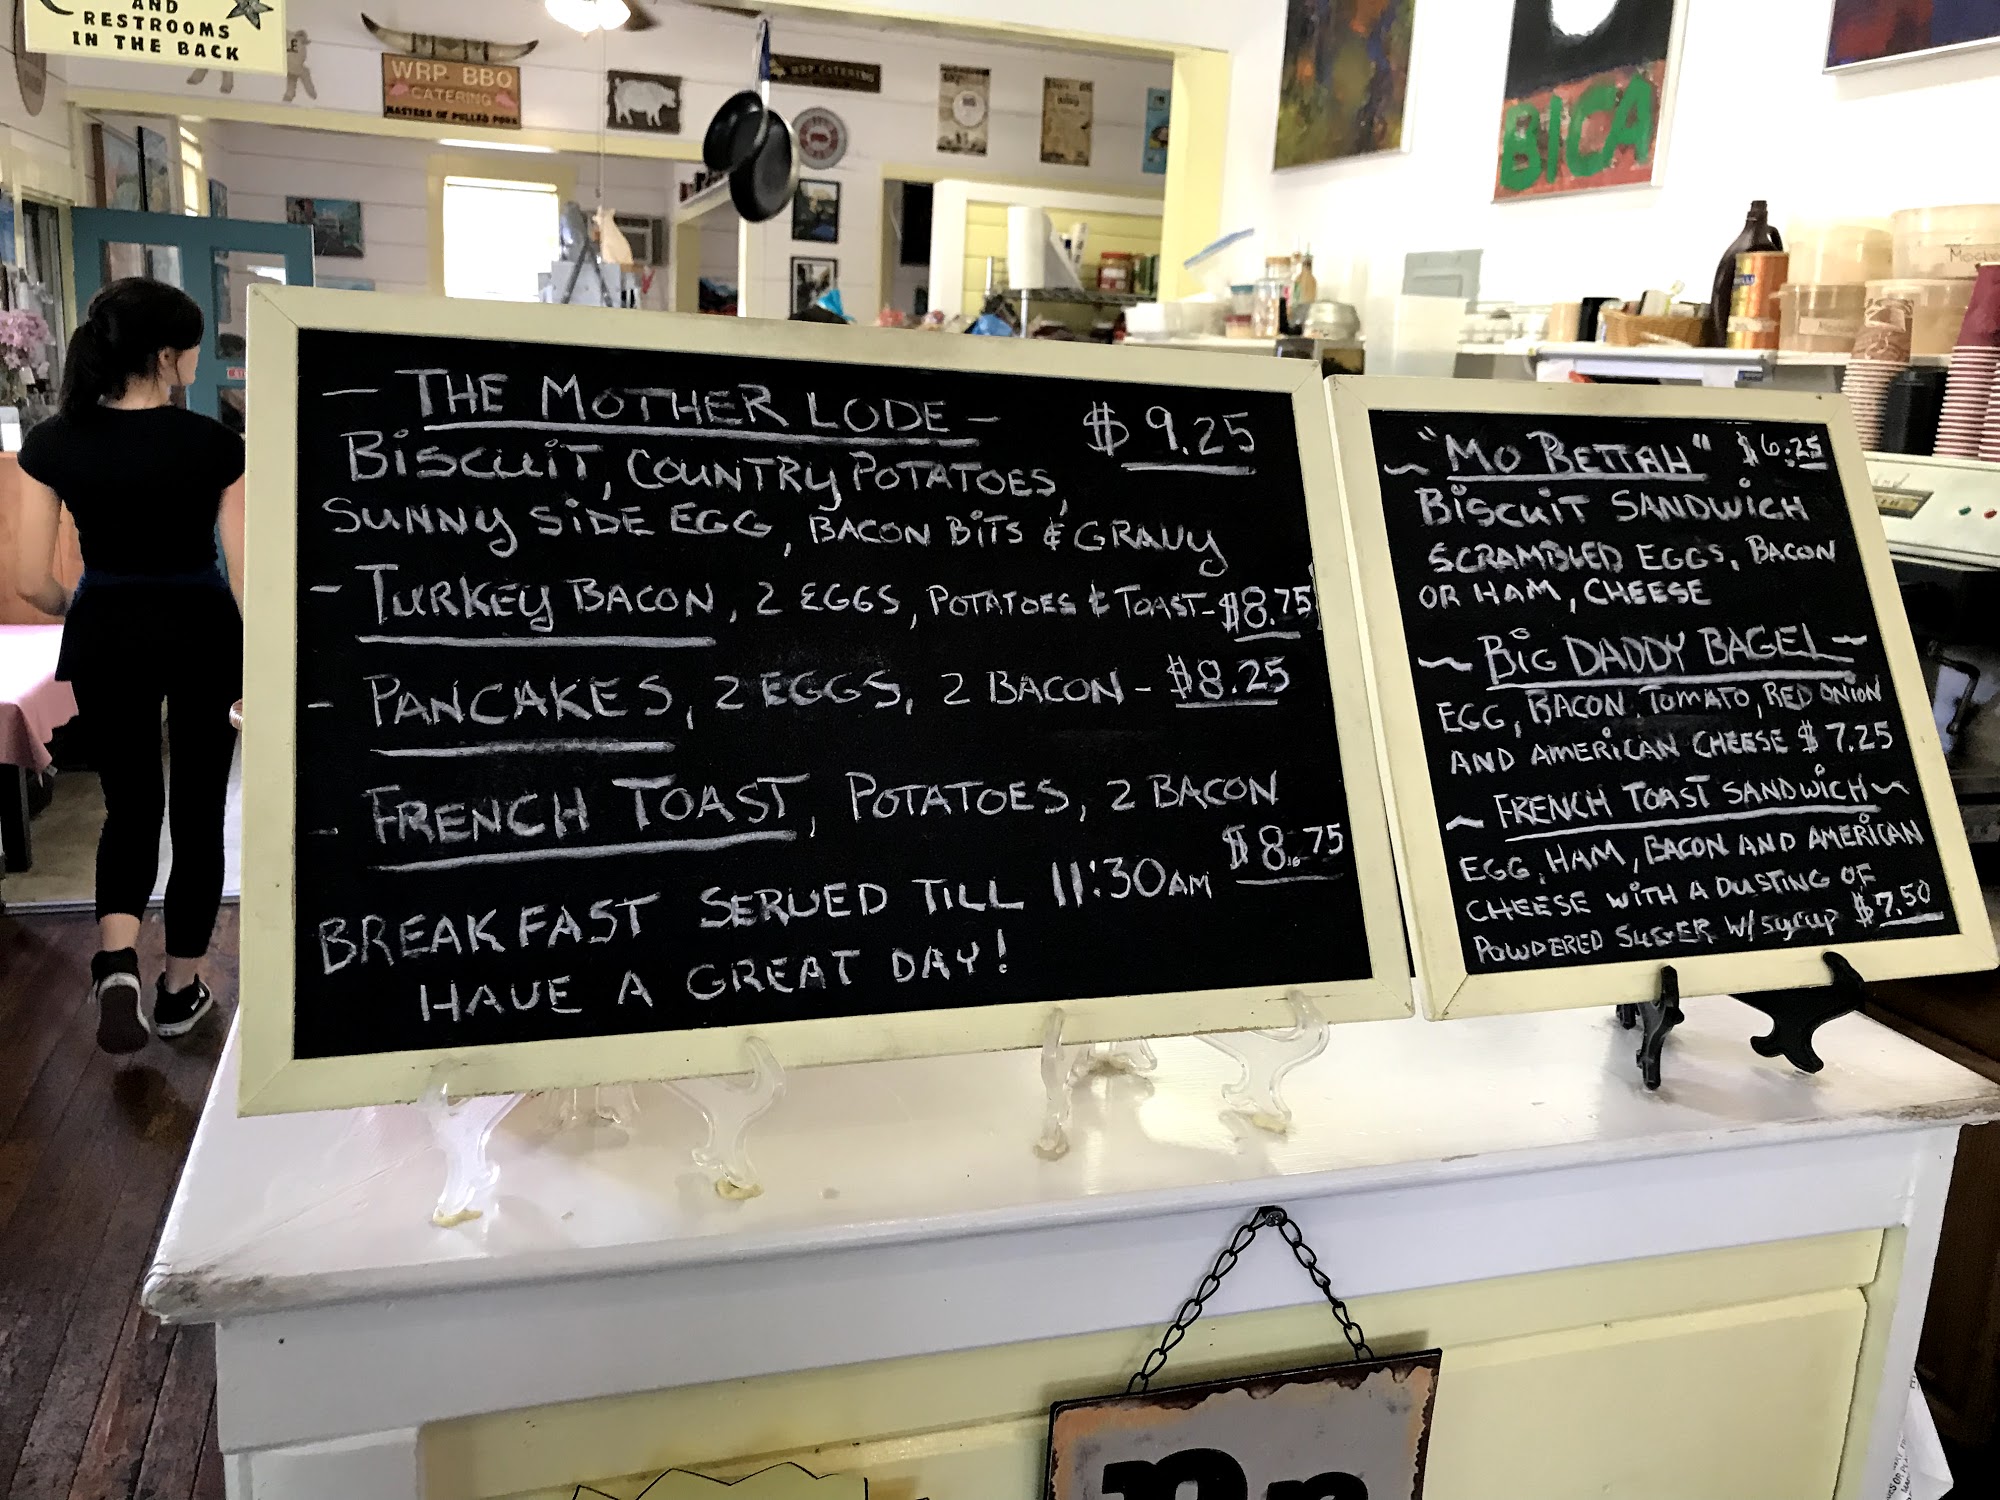 AND
RESTROOMS
IN THE BACK
WRP BBQ
CATERING
MASTERS OF PULLED PORK
WRP CATERING
BICA
- THE MOTHER LODE - $9.25
BISCUIT, COUNTRY POTATOES,
SUNNY SIDE EGG, BACON BITS & GRAVY
- TURKEY BACON, 2 EGGS, POTATOES & TOAST - $8.75
- PANCAKES, 2 EGGS, 2 BACON - $8.25
- FRENCH TOAST, POTATOES, 2 BACON
$8.75
BREAKFAST SERVED TILL 11:30AM
HAVE A GREAT DAY!
~ "MO BETTAH" $6.25
BISCUIT SANDWICH
SCRAMBLED EGGS, BACON
OR HAM, CHEESE
~ BIG DADDY BAGEL ~
EGG, BACON, TOMATO, RED ONION
AND AMERICAN CHEESE $7.25
~ FRENCH TOAST SANDWICH ~
EGG, HAM, BACON AND AMERICAN
CHEESE WITH A DUSTING OF
POWDERED SUGER W/ syrup $7.50